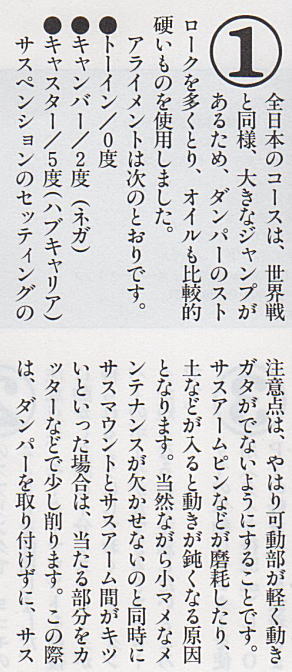 ①
全日本のコースは、世界戦
と同様、大きなジャンプが
あるため、ダンパーのスト
ロークを多くとり、オイルも比較的
硬いものを使用しました。
アライメントは次のとおりです。
●トーイン／0度
●キャンバー／2度（ネガ）
●キャスター／5度（ハブキャリア）
サスペンションのセッティングの
注意点は、やはり可動部が軽く動き
ガタがでないようにすることです。
サスアームピンなどが磨耗したり、
土などが入ると動きが鈍くなる原因
となります。当然ながら小マメなメ
ンテナンスが欠かせないのと同時に
サスマウントとサスアーム間がキツ
いといった場合は、当たる部分をカ
ッターなどで少し削ります。この際
は、ダンパーを取り付けずに、サス